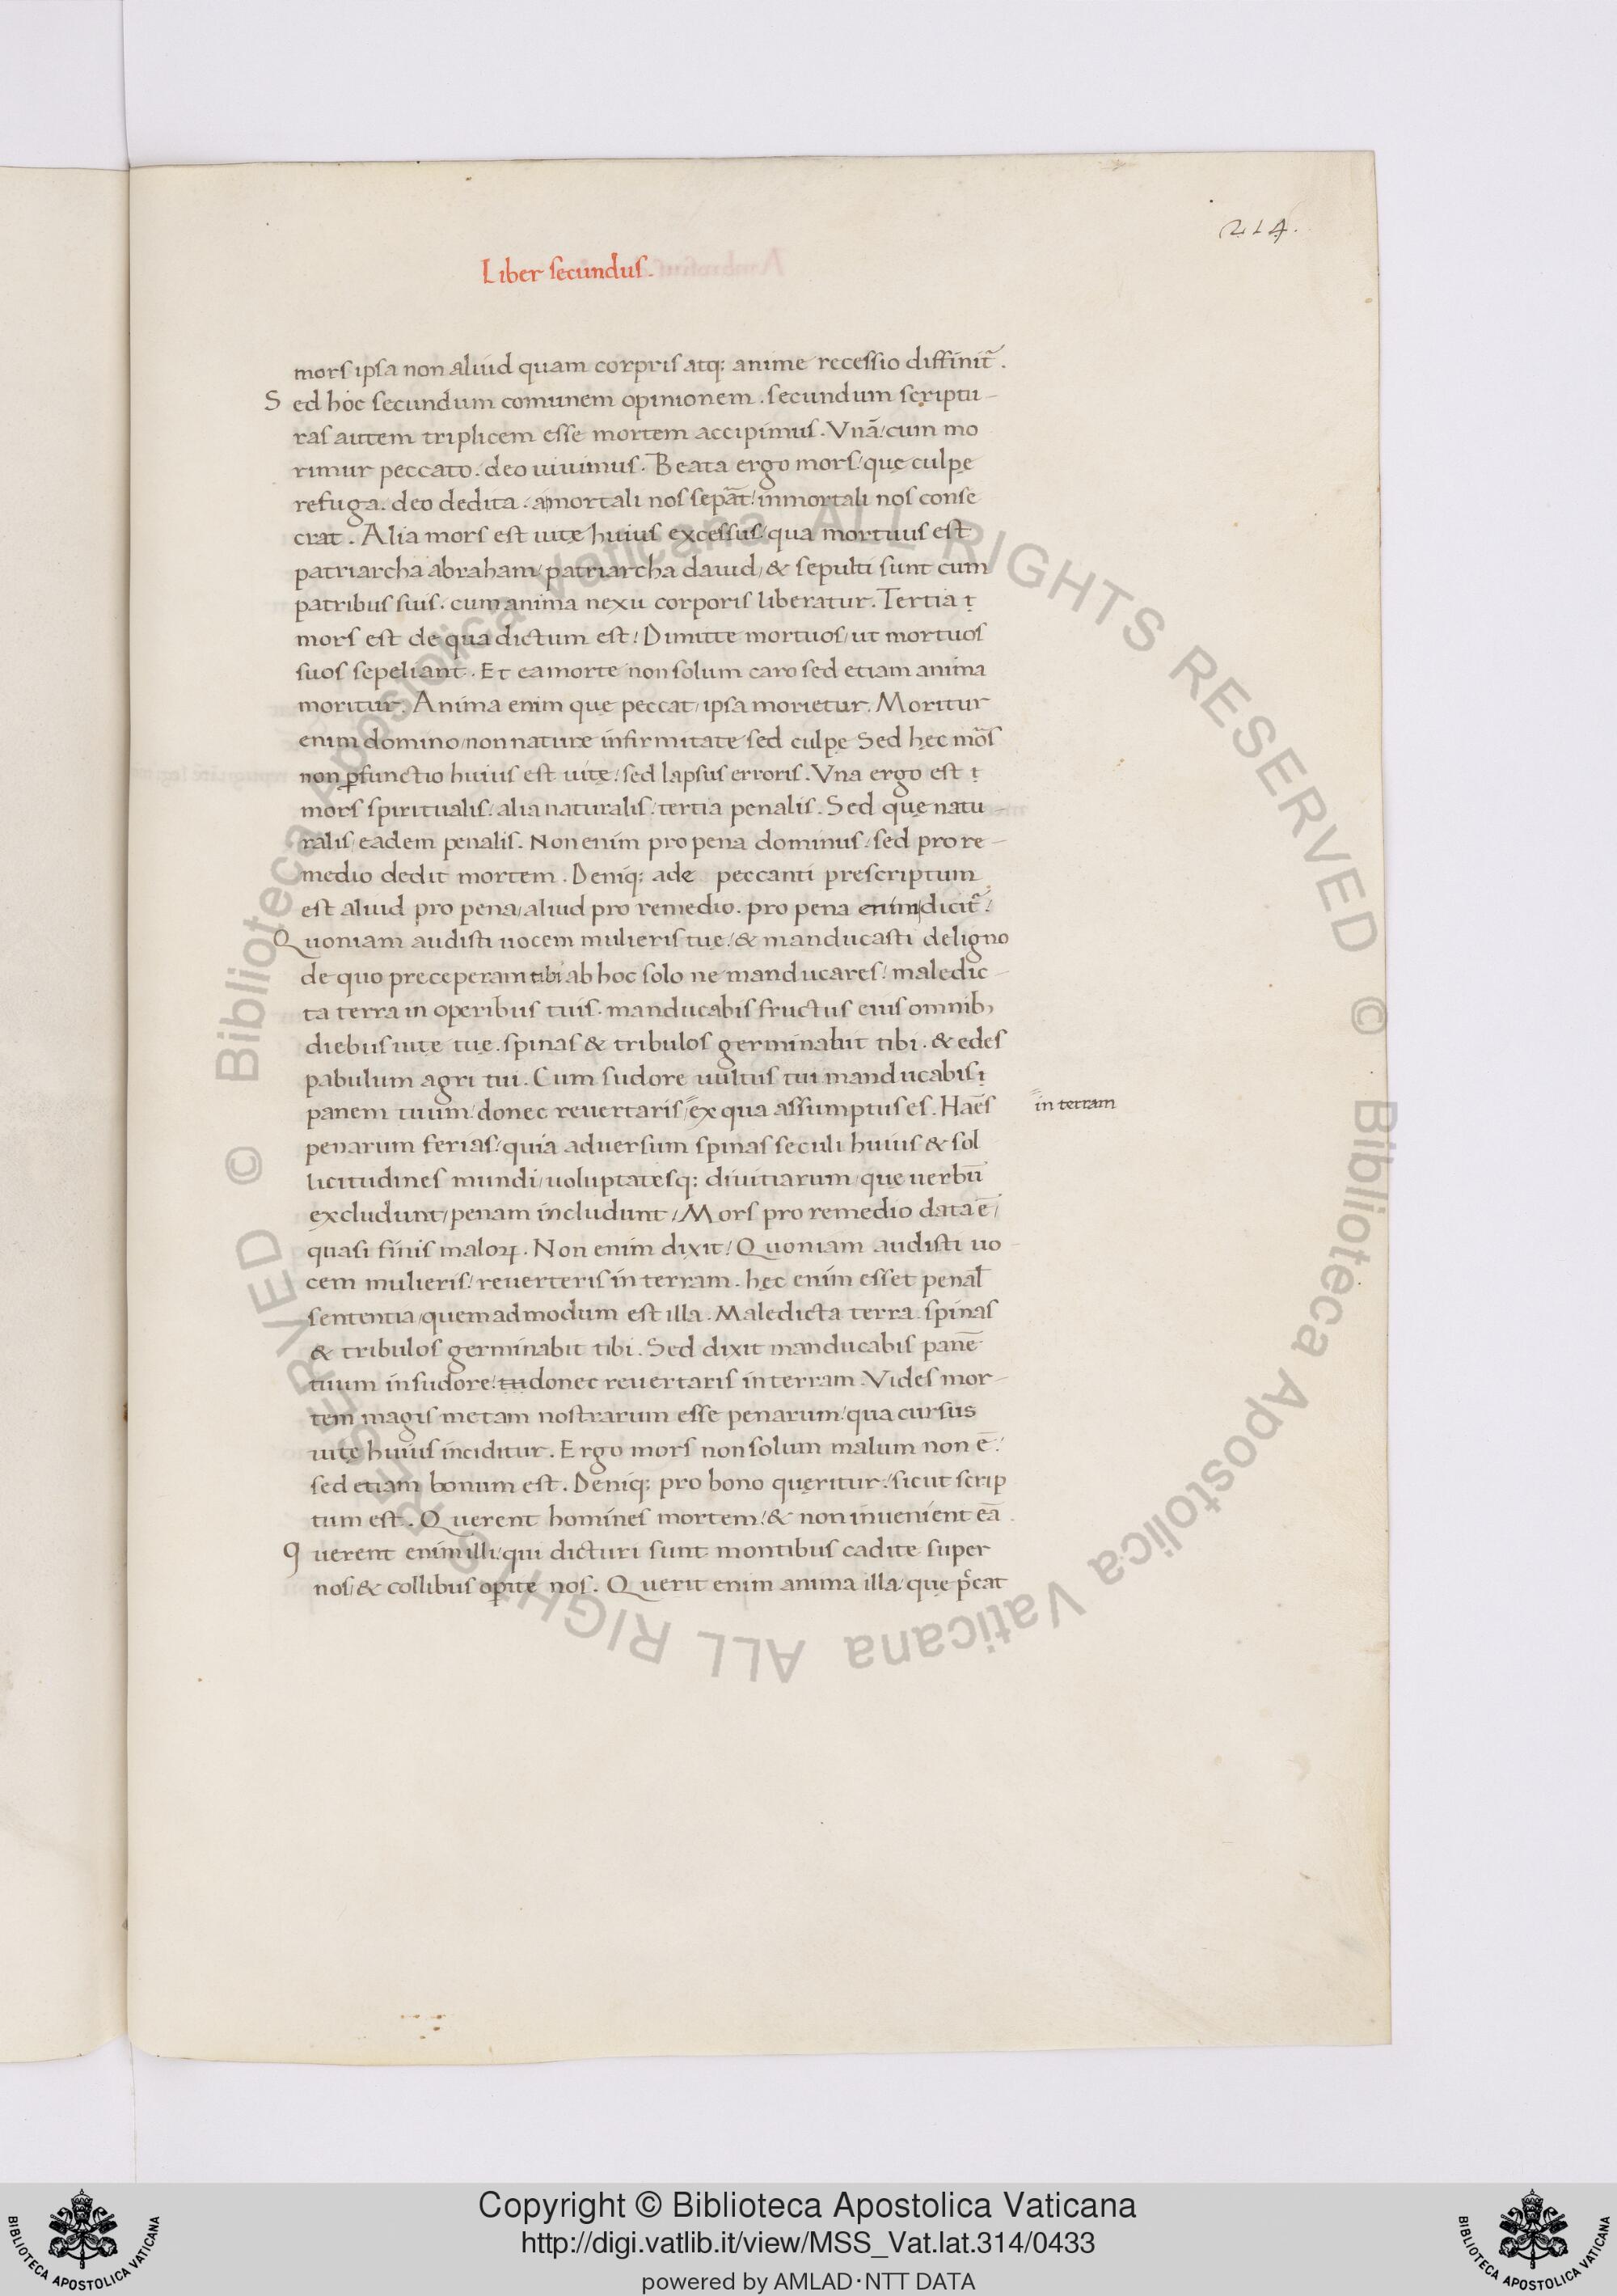 214.
Liber secundus.
mors ipsa non aliud quam corpris atq; anime recessio diffinit᷑.
Sed hoc secundum comunem opinionem. secundum scriptu-
ras autem triplicem esse mortem accipimus. Vnā/ cum mo
rimur peccato. deo uiuimus. Beata ergo mors/ quę culpę
refuga. deo dedita. a mortali nos sepāt/ inmortali nos conse
crat. Alia mors est uitę huius excessus/ qua mortuus est
patriarcha abraham/ patriarcha dauid/ & sepulti sunt cum
patribus suis. cum anima nexu corporis liberatur. Tertia
mors est de qua dictum est/ Dimitte mortuos/ ut mortuos
suos sepeliant. Et ea morte non solum caro sed etiam anima
moritur. Anima enim quę peccat/ ipsa morietur. Moritur
enim domino/ non naturæ infirmitate sed culpę Sed hęc mo᷑s
non ꝑfunctio huius est uitę/ sed lapsus erroris. Vna ergo est
mors spiritualis/ alia naturalis/ tertia penalis. Sed quę natu-
ralis/ eadem penalis. Non enim pro pena dominus/ sed pro re-
medio dedit mortem. Deniq; ade peccanti prescriptum
est aliud pro pena/ aliud pro remedio. pro pena enim dicit᷑/
Quoniam audisti uocem mulieris tuę/ & manducasti de ligno
de quo preceperam tibi ab hoc solo ne manducares/ maledic-
ta terra in operibus tuis. manducabis fructus eius omnib;
diebus uitę tuę. spinas & tribulos germinabit tibi. & edes
pabulum agri tui. Cum sudore uultus tui manducabis
panem tuum/ donec reuertaris/ ex qua assumptus es. Haēs
in terram
penarum ferias/ quia aduersum spinas seculi huius & sol
licitudines mundi/ uoluptatesq; diuitiarum/ que uerbū
excludunt/ penam includunt/ Mors pro remedio data ē/
quasi finis maloꝝ. Non enim dixit/ Quoniam audisti uo
cem mulieris/ reuerteris in terram. hęc enim esset penal̄
sententia/ quemadmodum est illa. Maledicta terra spinas
& tribulos germinabit tibi. Sed dixit manducabis panē
tuum in sudore/ tu donec reuertaris in terram. Vides mor-
tem magis metam nostrarum esse penarum/ qua cursus
uitę huius inciditur. Ergo mors non solum malum non ē/
sed etiam bonum est. Deniq; pro bono quęritur/ sicut scrip
tum est. Querent homines mortem/ & non inuenient eā.
querent enim illi/ qui dicturi sunt montibus cadite super
nos/ & collibus oꝑite nos. Querit enim anima illa/ quę pc̄cat
© Biblioteca Apostolica Vaticana ALL RIGHTS RESERVED
© Biblioteca Apostolica Vaticana ALL RIGHTS RESERVED
Copyright © Biblioteca Apostolica Vaticana
http://digi.vatlib.it/view/MSS_Vat.lat.314/0433
powered by AMLAD·NTT DATA
BIBLIOTECA APOSTOLICA VATICANA
BIBLIOTECA APOSTOLICA VATICANA